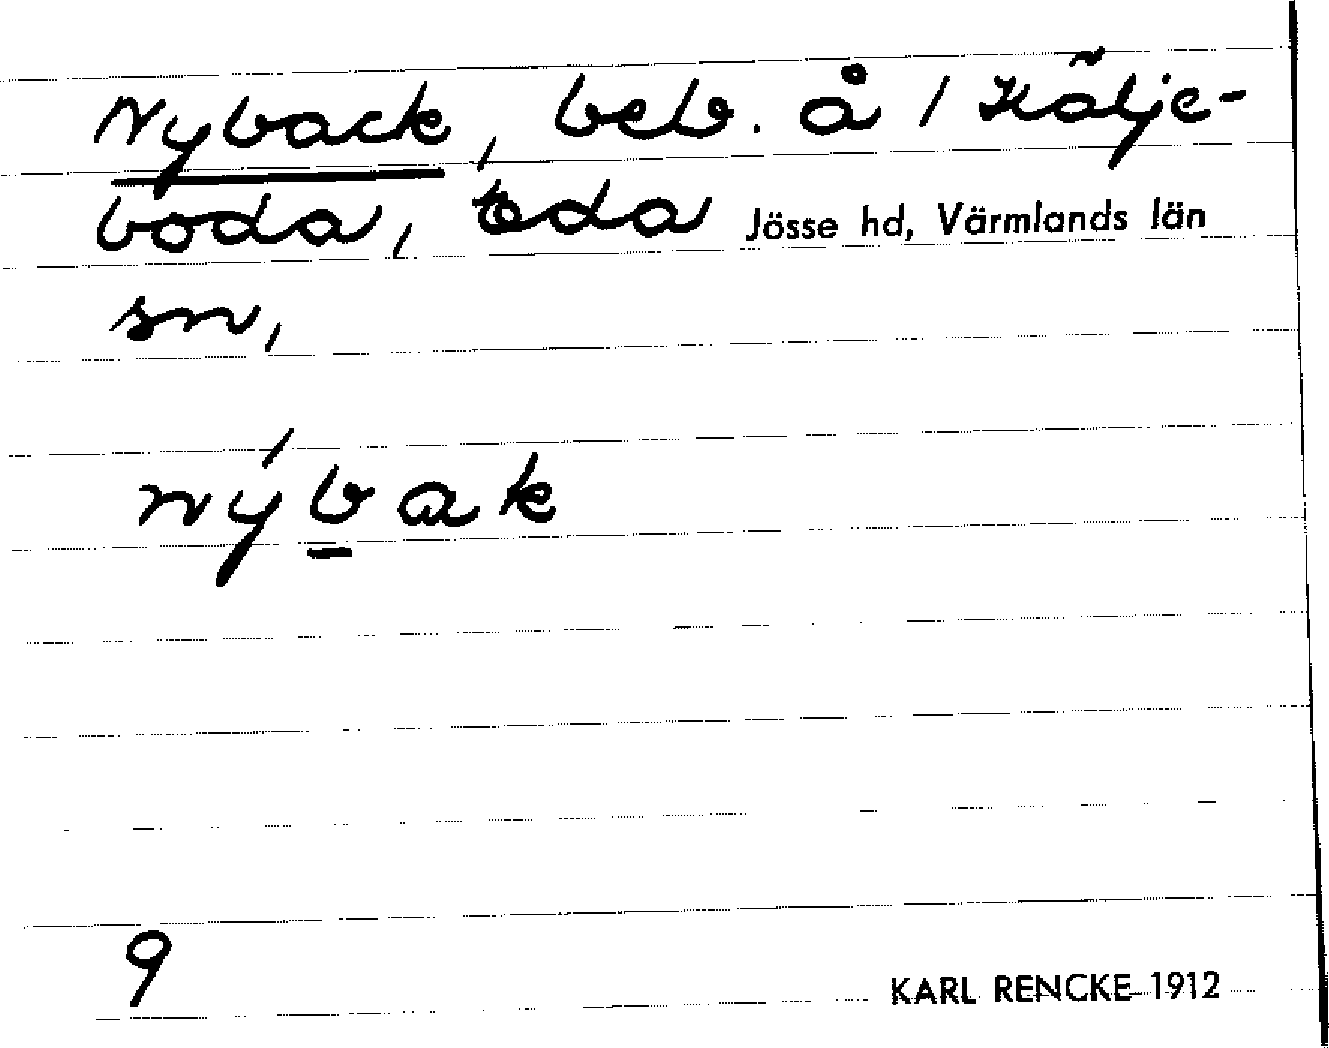 Nyback, beb. å 1 Kälje-
boda, Eda Jösse hd, Värmlands län
sn,
nýbak
9
KARL RENCKE 1912